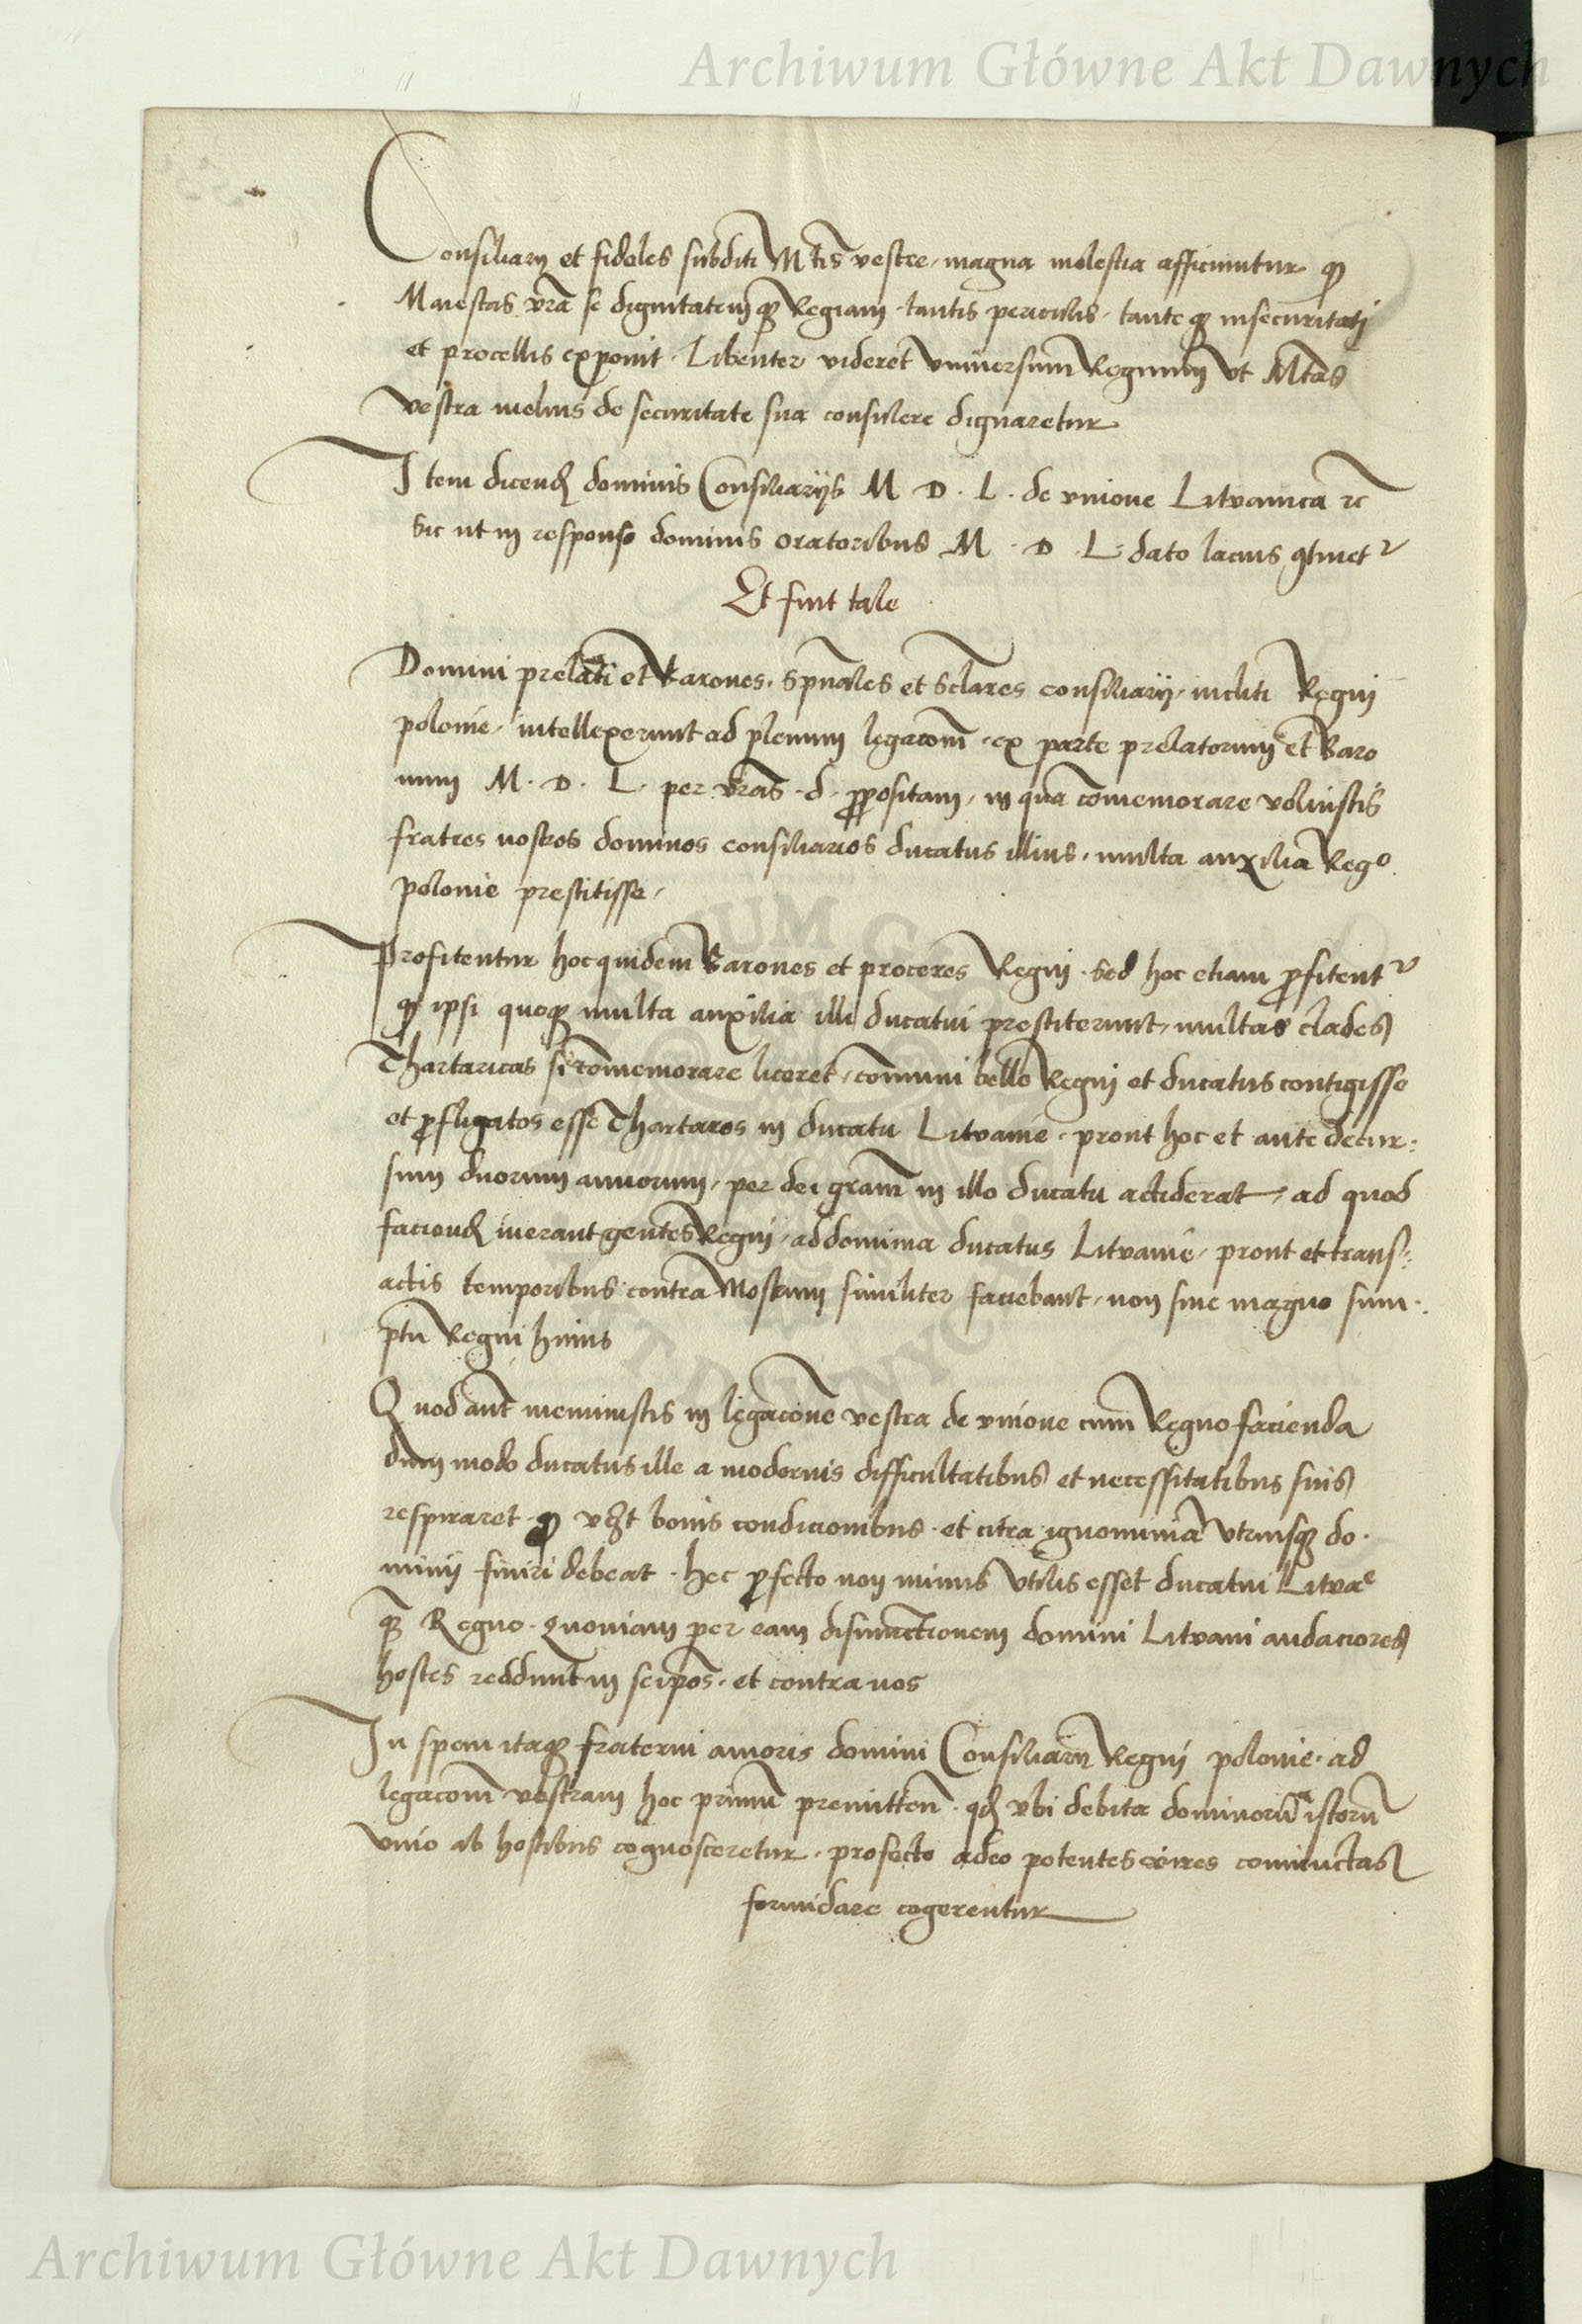 Archiwum Główne Akt Dawnych
Consiliarij et fideles subditi Mtis vestre, magna molestia afficiuntur qꝫ
Maiestas vrã se dignitatemqꝫ Regiam, tantis periculis, tanteqꝫ insecuritatj
et procellis exponit. Libenter videret vniuersum Regnum vt Mtas
vestra melius de securitate sua consulere dignaretur
Item dicend dominis Consiliarijs M. D. L. de vnione Litvanica rc
sic ut in responso dominis oratoribus M. D. L. dato lacius ꝯtinetr
Et fuit tale
Domini prelati et Barones, spũales et sclares consiliarij, incliti Regnj
polonie, intellexerunt ad plenum legacom̃, ex parte prelatorum et Baro
num M. D. L. per vras. d. ꝓpositam, in qua com̃emorare voluistis
fratres nostros dominos consiliarios ducatus illius, multa auxilia Rego
polonie prestitisse,
Profitentur hoc quidem Barones et proceres Regnj. Sed hoc etiam ꝓfitentr
qꝫ ipsi quoqꝫ multa auxilia illi ducatui prestiterunt, multas clades
Thartaricas si com̃emorare liceret, com̃uni bello Regnj et ducatus contigisse
et ꝓfligatos esse Thartaros in ducatu Litvanie, prout hoc et ante decur:
sum duorum annorum, per dei gram̃ in illo ducatu acciderat, ad quod
faciend iuerant gentes Regnj, ad dominia ducatus Litvanie, prout et trans:
actis temporibus contra Moskum similiter faciebant, non sine magno sum:
ptu Regni huius
Quod aut̃ meministis in legacõne vestra de vnione cum Regno facienda
dum modo ducatus ille a modernis difficultatibus et necessitatibus suis
respiraret. qꝫ bonis condicionibus, et citra ignominiã vtriusqꝫ do:
minij finiri debeat. hec ꝓfecto non minus vtilis esset ducatui Litvae
qꝫ Regno. Quoniam per eam disiunctionem domini Litvani audaciores
hostes reddunt in seipõs, et contra nos
In spem itaqꝫ fraterni amoris domini Consiliarij Regni polonie, ad
legacom̃ vestram hoc primũ premitten̄. qd vbi debita dominorũ istorũ
vnio ab hostibus cognosceretur, profecto adeo potentes vires coniunctas
formidare cogerentur
Archiwum Główne Akt Dawnych